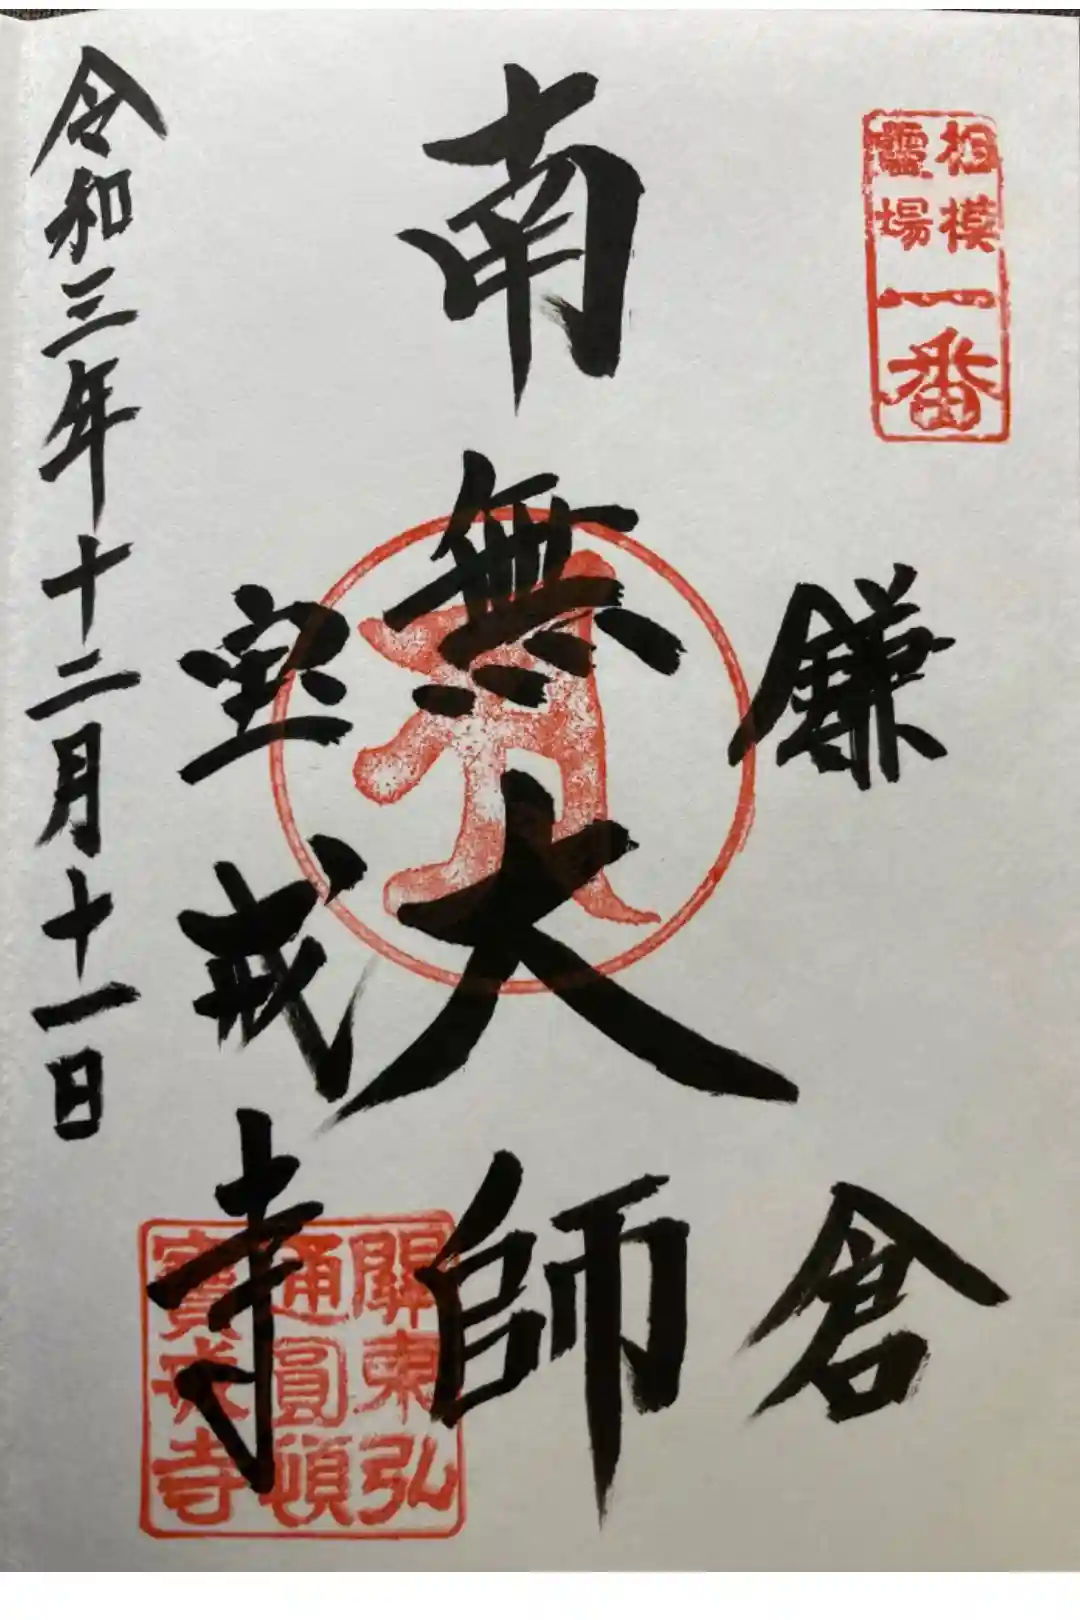 相模
靈場
一番
鎌倉
南無大師
宝戒寺
關東弘
通圓頓
寶戒寺
令和三年十二月十一日